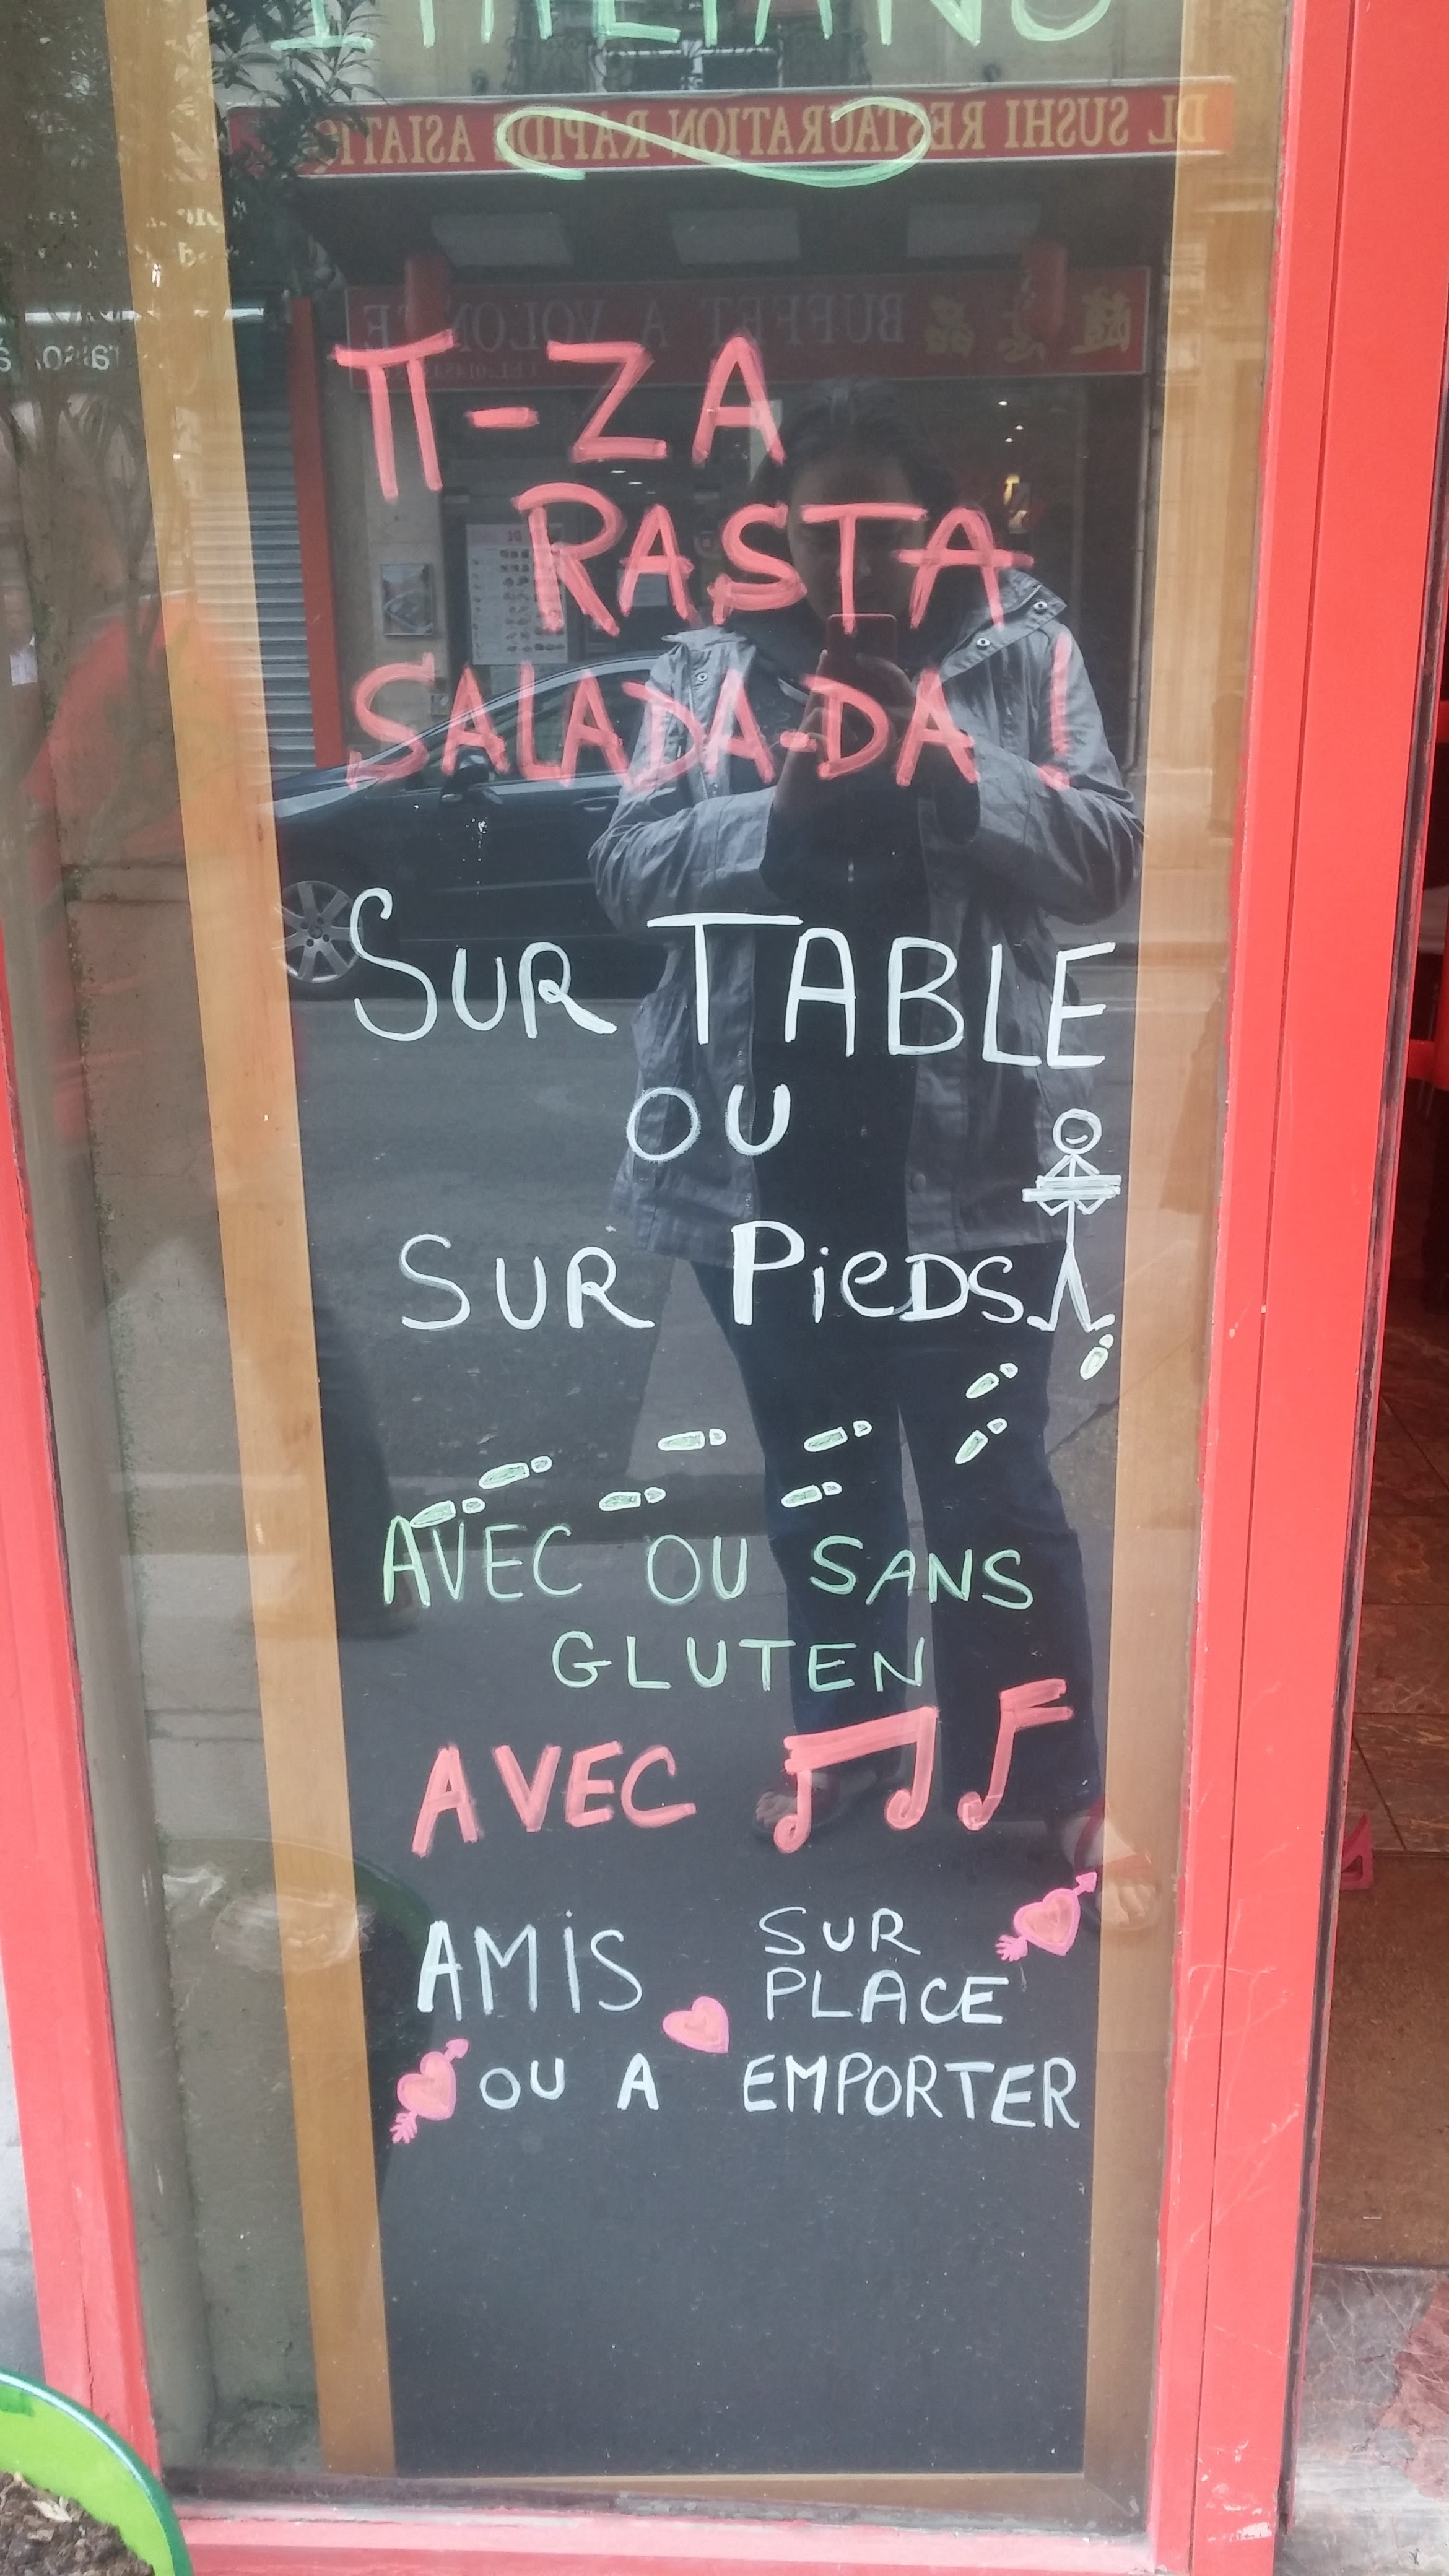 ITALIANO
DL SUSHI RESTAURATION RAPIDE ASIATIQUE
BUFFET A VOLONTE
π-ZA
RASTA
SALADA-DA !
SUR TABLE
OU
SUR PieDS
AVEC OU SANS
GLUTEN
AVEC
AMiS SUR
PLACE
OU A EMPORTER